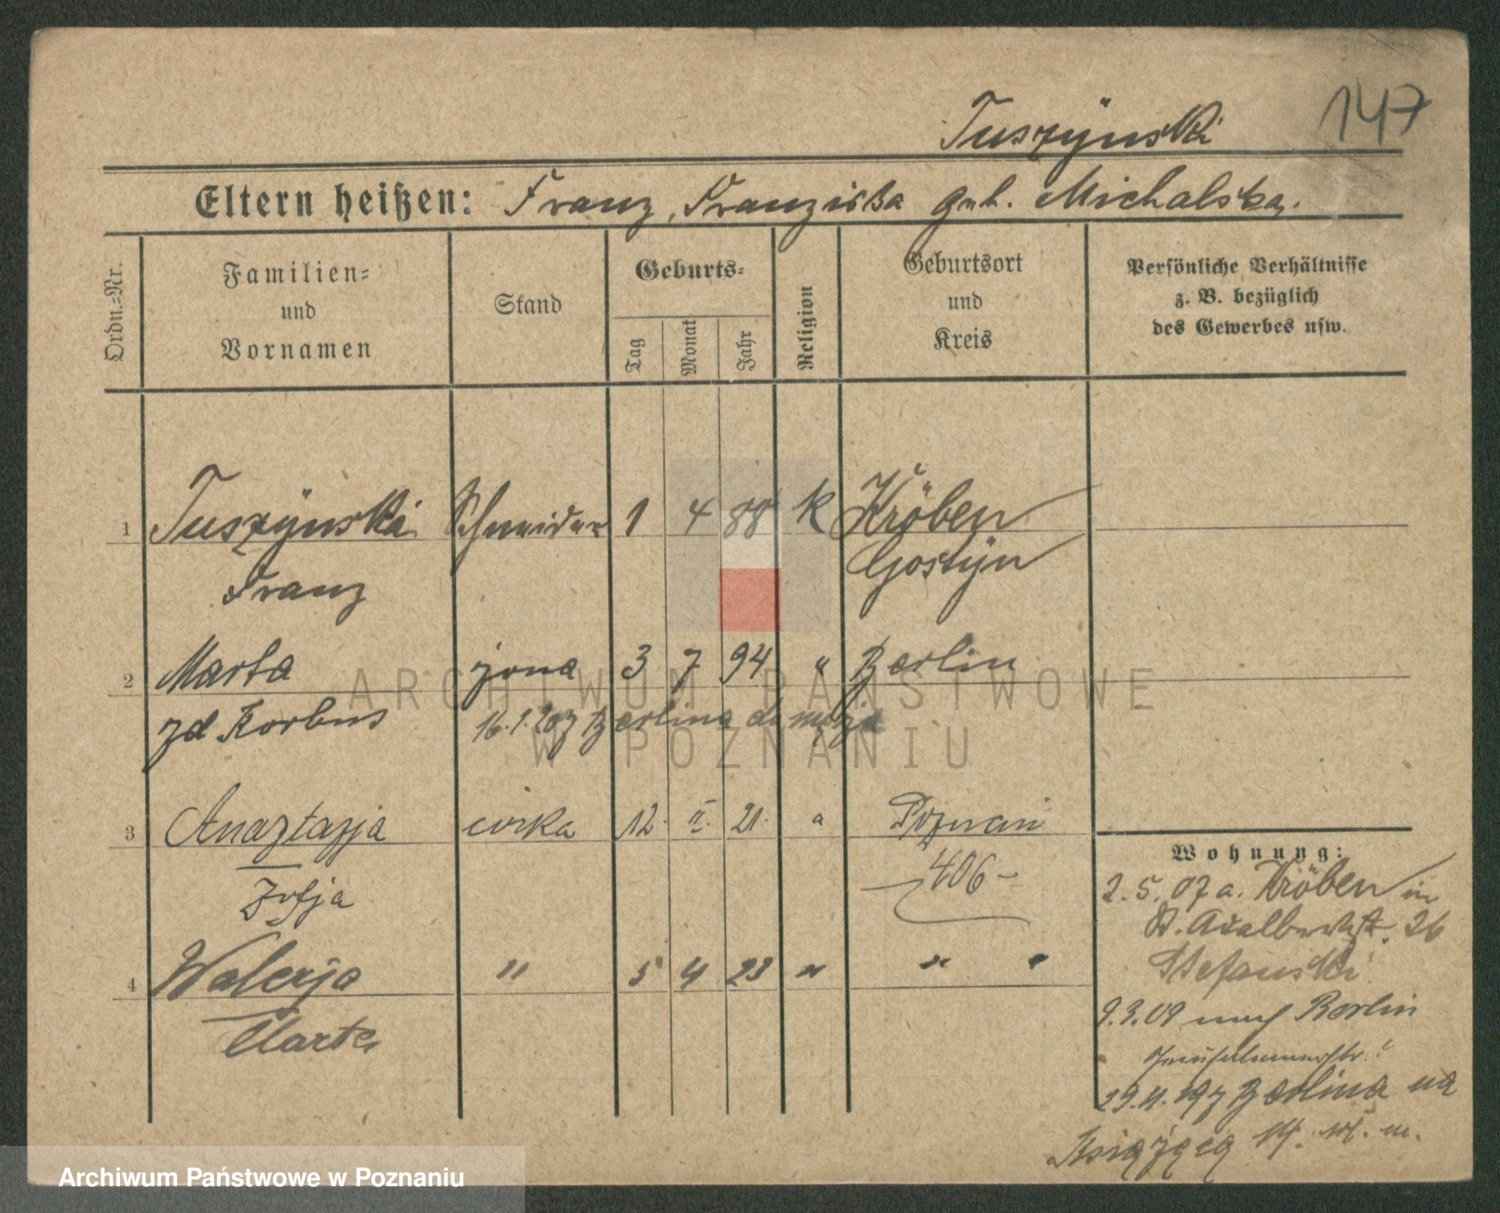 147
Tuszÿnski
Eltern heißen: Franz, Franziska geb. Michalska.
Ordn.=Nr.
Familien=
und
Vornamen
Stand
Geburts=
Tag
Monat
Jahr
Religion
Geburtsort
und
Kreis
Persönliche Verhältnisse
z. B. bezüglich
des Gewerbes usw.
1 Tuszÿnski Schneider 1 4 88 k Kröben
Franz Gostÿn
2 Marta żona 3 7 94 " Berlin
zd Korbus 16.1.20 z Berlina do męża
3 Anaztazja córka 12. II. 21. " Poznań
Zofja 406-
4 Walerja " 5 4 23 " " "
Marta
Wohnung:
2.5.07 a. Kröben in
St. Adalbertstr. 26
Stefanski
9.3.09 nach Berlin
z Berlina na
14.
ARCHIWUM PAŃSTWOWE
W POZNANIU
Archiwum Państwowe w Poznaniu